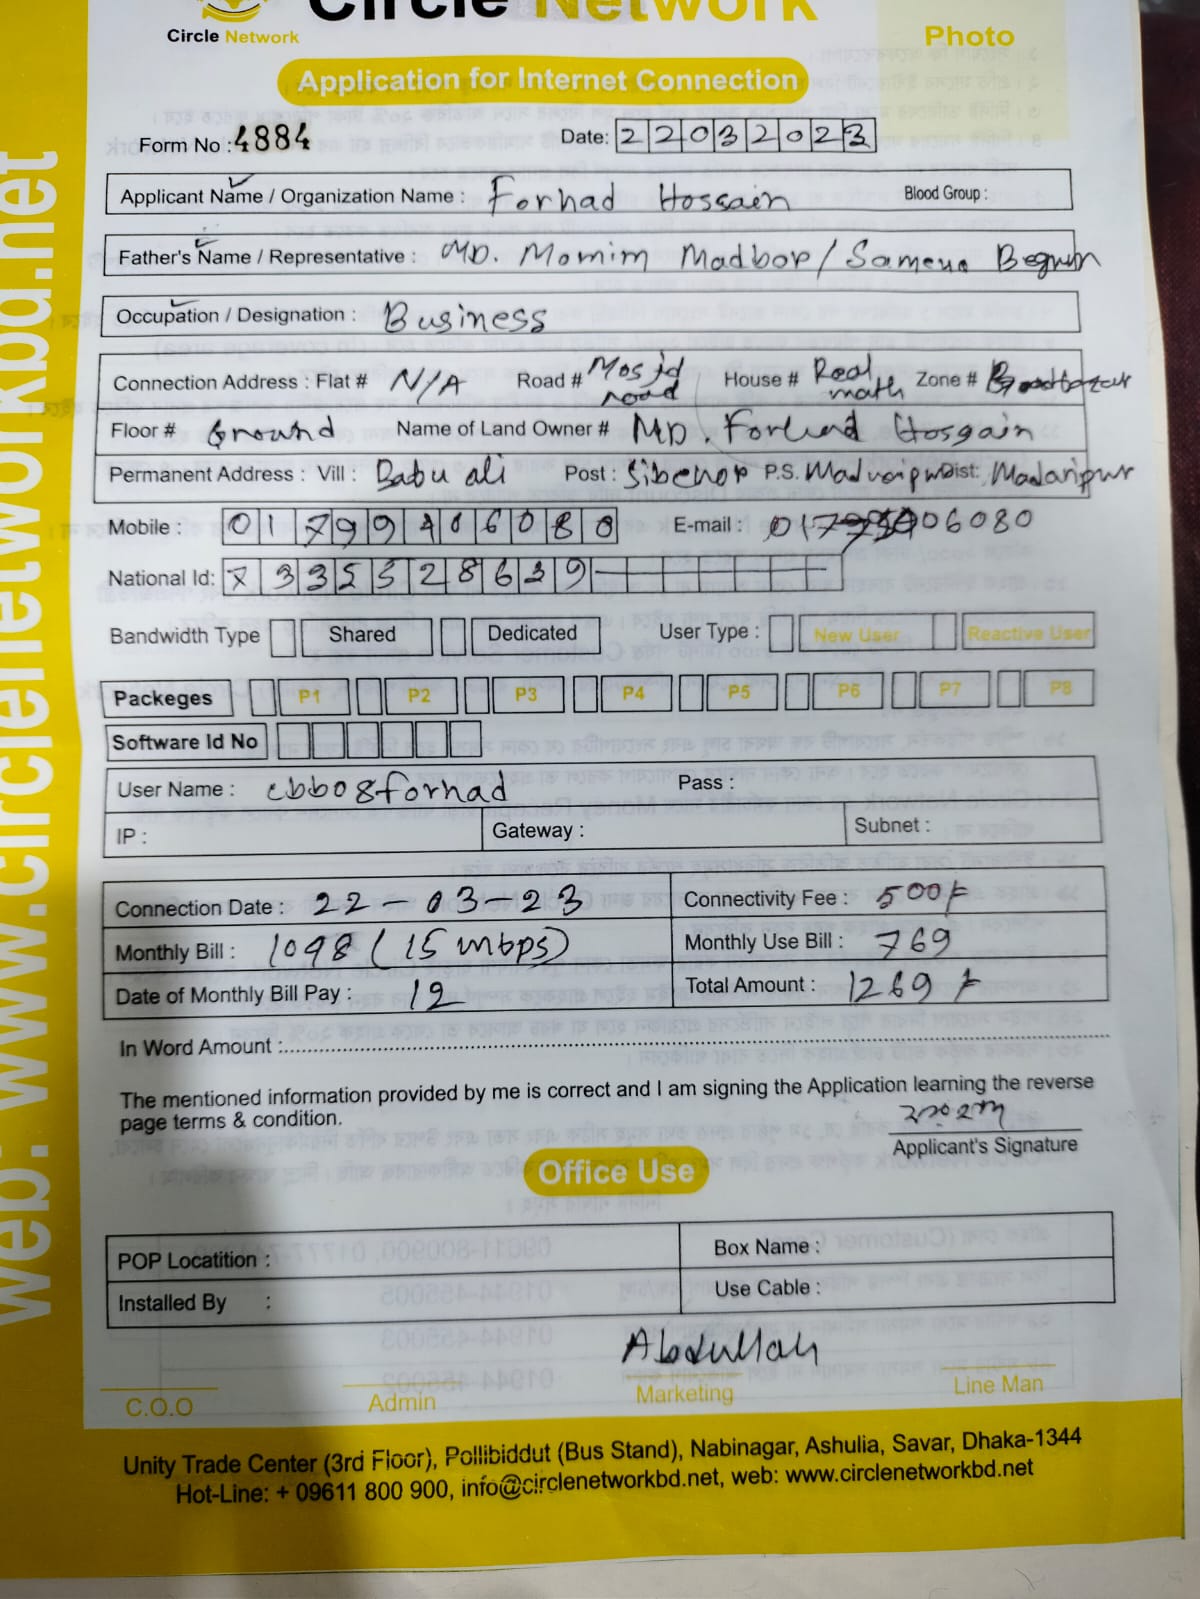 Circle Network
Circle Network
Photo
Application for Internet Connection
Form No : 4884
Date: 22032023
Applicant Name / Organization Name : Forhad Hossain Blood Group :
Father's Name / Representative : MD. Momim Madbor / Samena Begum
Occupation / Designation : Business
Connection Address : Flat # N/A Road # Mosjd road House # Real math Zone #
Floor # Ground Name of Land Owner # MD. Forhad Hossain
Permanent Address : Vill : Babu ali Post : Sibchor P.S. Madaripur Dist: Madaripur
Mobile : 01799406080 E-mail :
National Id: 7335528639
Bandwidth Type Shared Dedicated User Type : New User Reactive User
Packeges P1 P2 P3 P4 P5 P6 P7 P8
Software Id No
User Name : cbbo8forhad Pass :
IP : Gateway : Subnet :
Connection Date : 22-03-23 Connectivity Fee : 500/-
Monthly Bill : 1098 (15 mbps) Monthly Use Bill : 769
Date of Monthly Bill Pay : 12 Total Amount : 1269/-
In Word Amount :
The mentioned information provided by me is correct and I am signing the Application learning the reverse
page terms & condition.
Applicant's Signature
Office Use
POP Locatition : Box Name :
Installed By : Use Cable :
Abdullah
C.O.O Admin Marketing Line Man
Unity Trade Center (3rd Floor), Pollibiddut (Bus Stand), Nabinagar, Ashulia, Savar, Dhaka-1344
Hot-Line: + 09611 800 900, info@circlenetworkbd.net, web: www.circlenetworkbd.net
web: www.circlenetworkbd.net